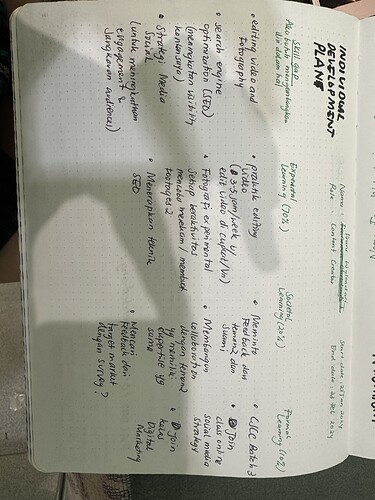 INDIVIDUAL
DEVELOPMENT
PLAN
Nama :
Role : Content Creator
Start date : 25 Jan 2024
End date : 28 Feb 2024
Skill gap
Aku butuh mengembangkan
diri dalam hal
• editing video and
Fotography
• search engine
optimization (SEO)
(meningkatkan visibility
kontensaya)
• Strategi Media
Sosial
(untuk meningkatkan
engagement &
Jangkauan audiences)
Experiential
Learning (70%)
• praktek editing
video
(3-5 jam/week u/
edit video di capcut/vn)
• Fotografi experimental
Setiap beraktivitas
mencoba merekam/membuat
footages2
• Menerapkan teknik
SEO
Societal
Learning (20%)
• Meminta
Feedback dari
teman2 dan
suami
• Membangun
collaboration
dengan teman2
yg memiliki
expertise yg
sama
• Mencari
Feedback dari
target market
dengan survey?
Formal
Learning (10%)
• CICC Batch 3
• Join
class online
social media
strategy
• Join
kelas
Digital
Marketing